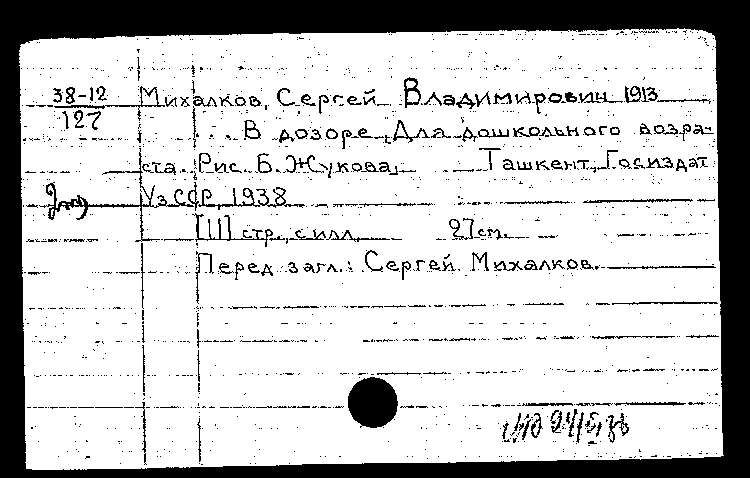 38-12
127
Михалков, Сергей Владимирович 1913
... В дозоре. Для дошкольного возра-
ста. Рис. Б. Жукова. Ташкент, Госиздат
УзССР, 1938
[11] стр., с илл. 27см.
Перед загл.: Сергей Михалков.